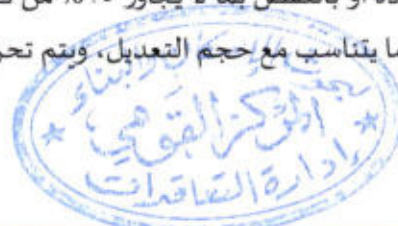 أو بالنقص بما لا يجاوز % من
ما يتناسب مع حجم التعديل، ويتم تحر
والبناء
المركز القومي
إدارة التعاقدات